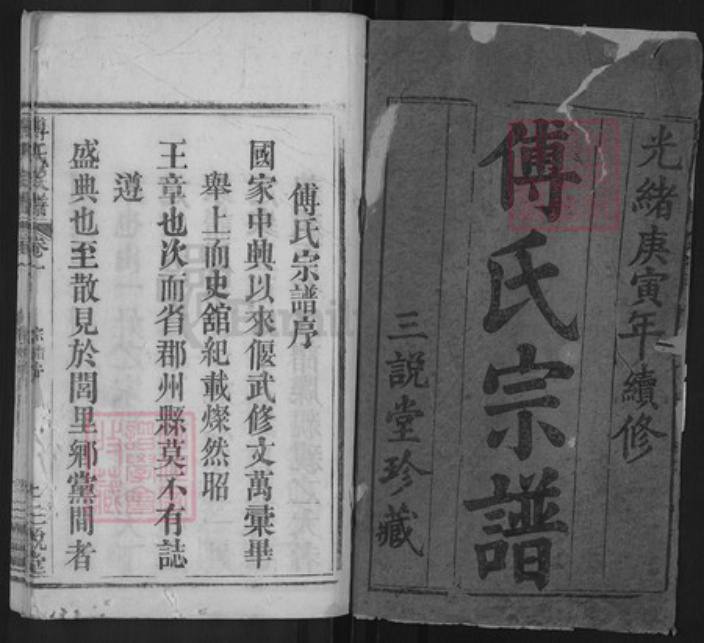 光緒庚寅年續修
傅氏宗譜
三説堂珍藏
傅氏宗譜序
國家中興以來偃武修文萬彙畢
舉上而史舘紀載燦然昭
王章也次而省郡州縣莫不有誌
遵
盛典也至散見於閭里鄉黨間者
卷一